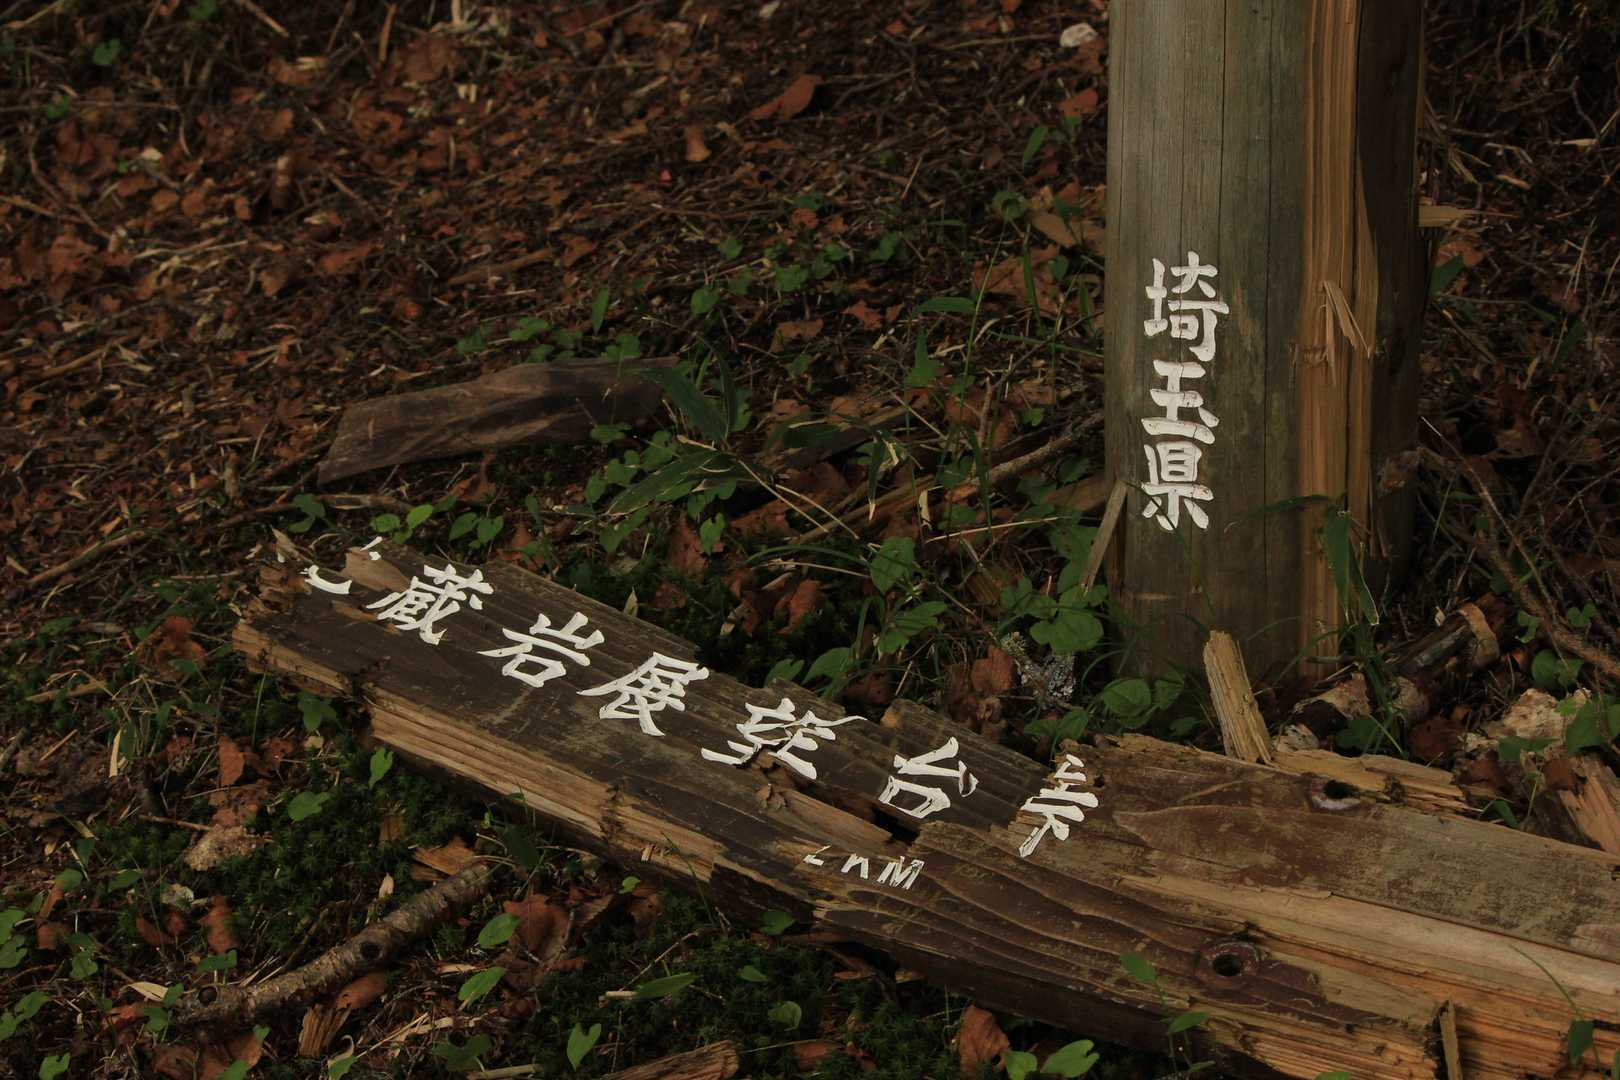 埼玉県
蔵岩展望台
KM